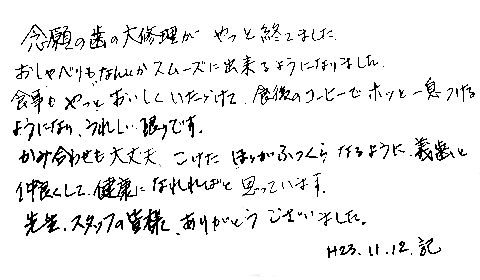 念願の歯の大修理が やっと終りました。
おしゃべりもなんとかスムーズに出来るようになりました。
食事もやっとおいしくいただけて、食後のコーヒーでホッと一息つける
ようになり、うれしい限りです。
かみ合わせも大丈夫、こけたほほがふっくらなるように、義歯と
仲良くして、健康になれればと思っています。
先生、スタッフの皆様、ありがとうございました。
H23.11.12.記